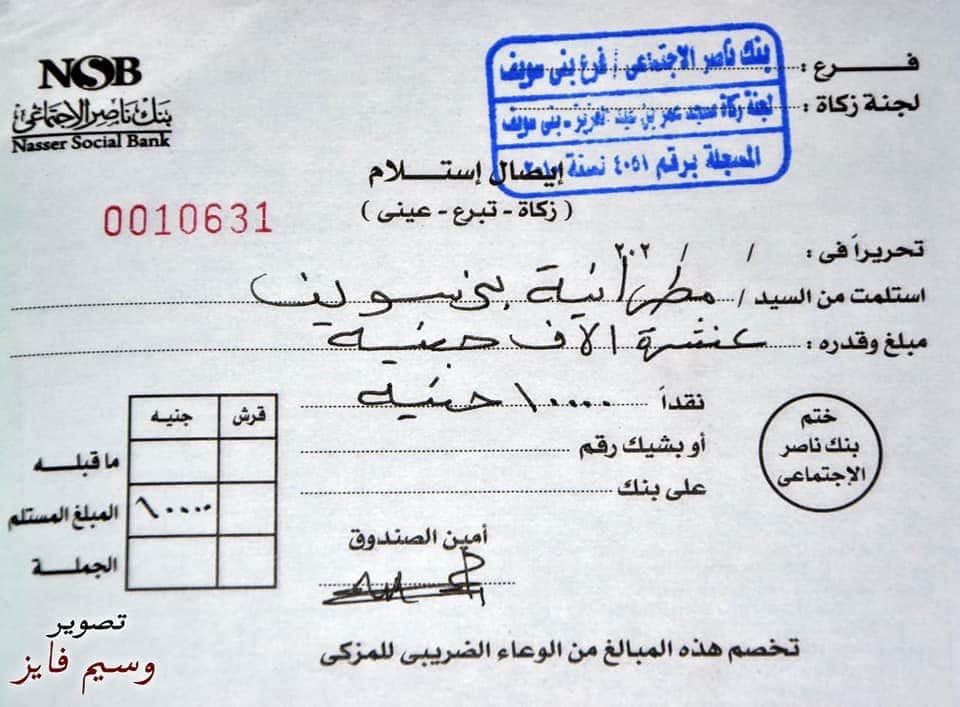 NSB
بنك ناصر الإجتماعى
Nasser Social Bank
فرع :
بنك ناصر الاجتماعى / فرع بنى سويف
لجنة زكاة :
لجنة زكاة مسجد عمر بن عبد العزيز - بنى سويف
المسجلة برقم ٤٠٥١ لسنة
إيصال إستلام
( زكاة - تبرع - عينى )
0010631
تحريراً فى : / / ٢٠٢
استلمت من السيد / مطرانية بنى سويف
مبلغ وقدره : عشرة الاف جنيه
نقداً ١٠٠٠٠ جنيه
أو بشيك رقم
على بنك
ختم
بنك ناصر
الإجتماعى
قرش جنيه
ما قبله
المبلغ المستلم ١٠٠٠٠
الجملة
أمين الصندوق
تخصم هذه المبالغ من الوعاء الضريبى للمزكى
تصوير
وسيم فايز